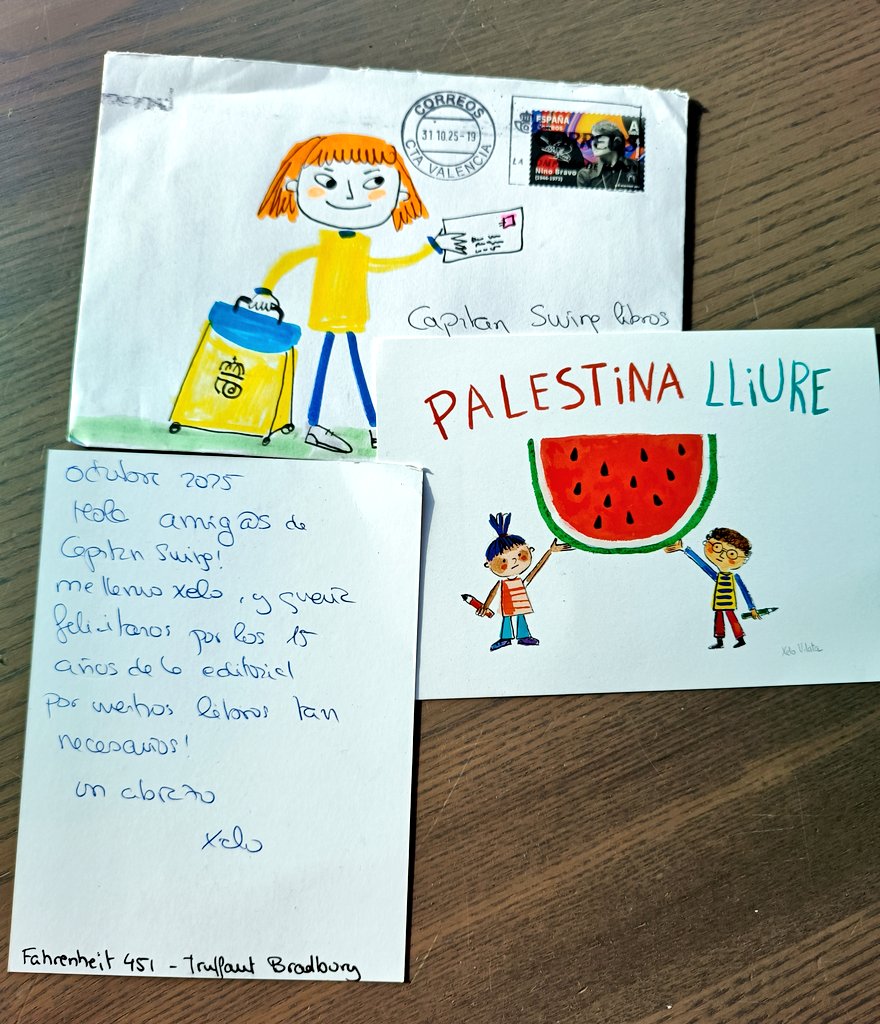 CORREOS
31 10.25-19
CTA VALENCIA
ESPAÑA
CORREOS
A
Nino Bravo
(1944-1973)
Capitan Swing libros
PALESTINA LLIURE
Xelo Vilata
octubre 2025
Hola amig@s de
Capitan Swing!
me llamo xelo, y quería
felicitaros por los 15
años de la editorial
por vuestros libros tan
necesarios!
un abrazo
xelo
Fahrenheit 451 - Truffaut Bradbury